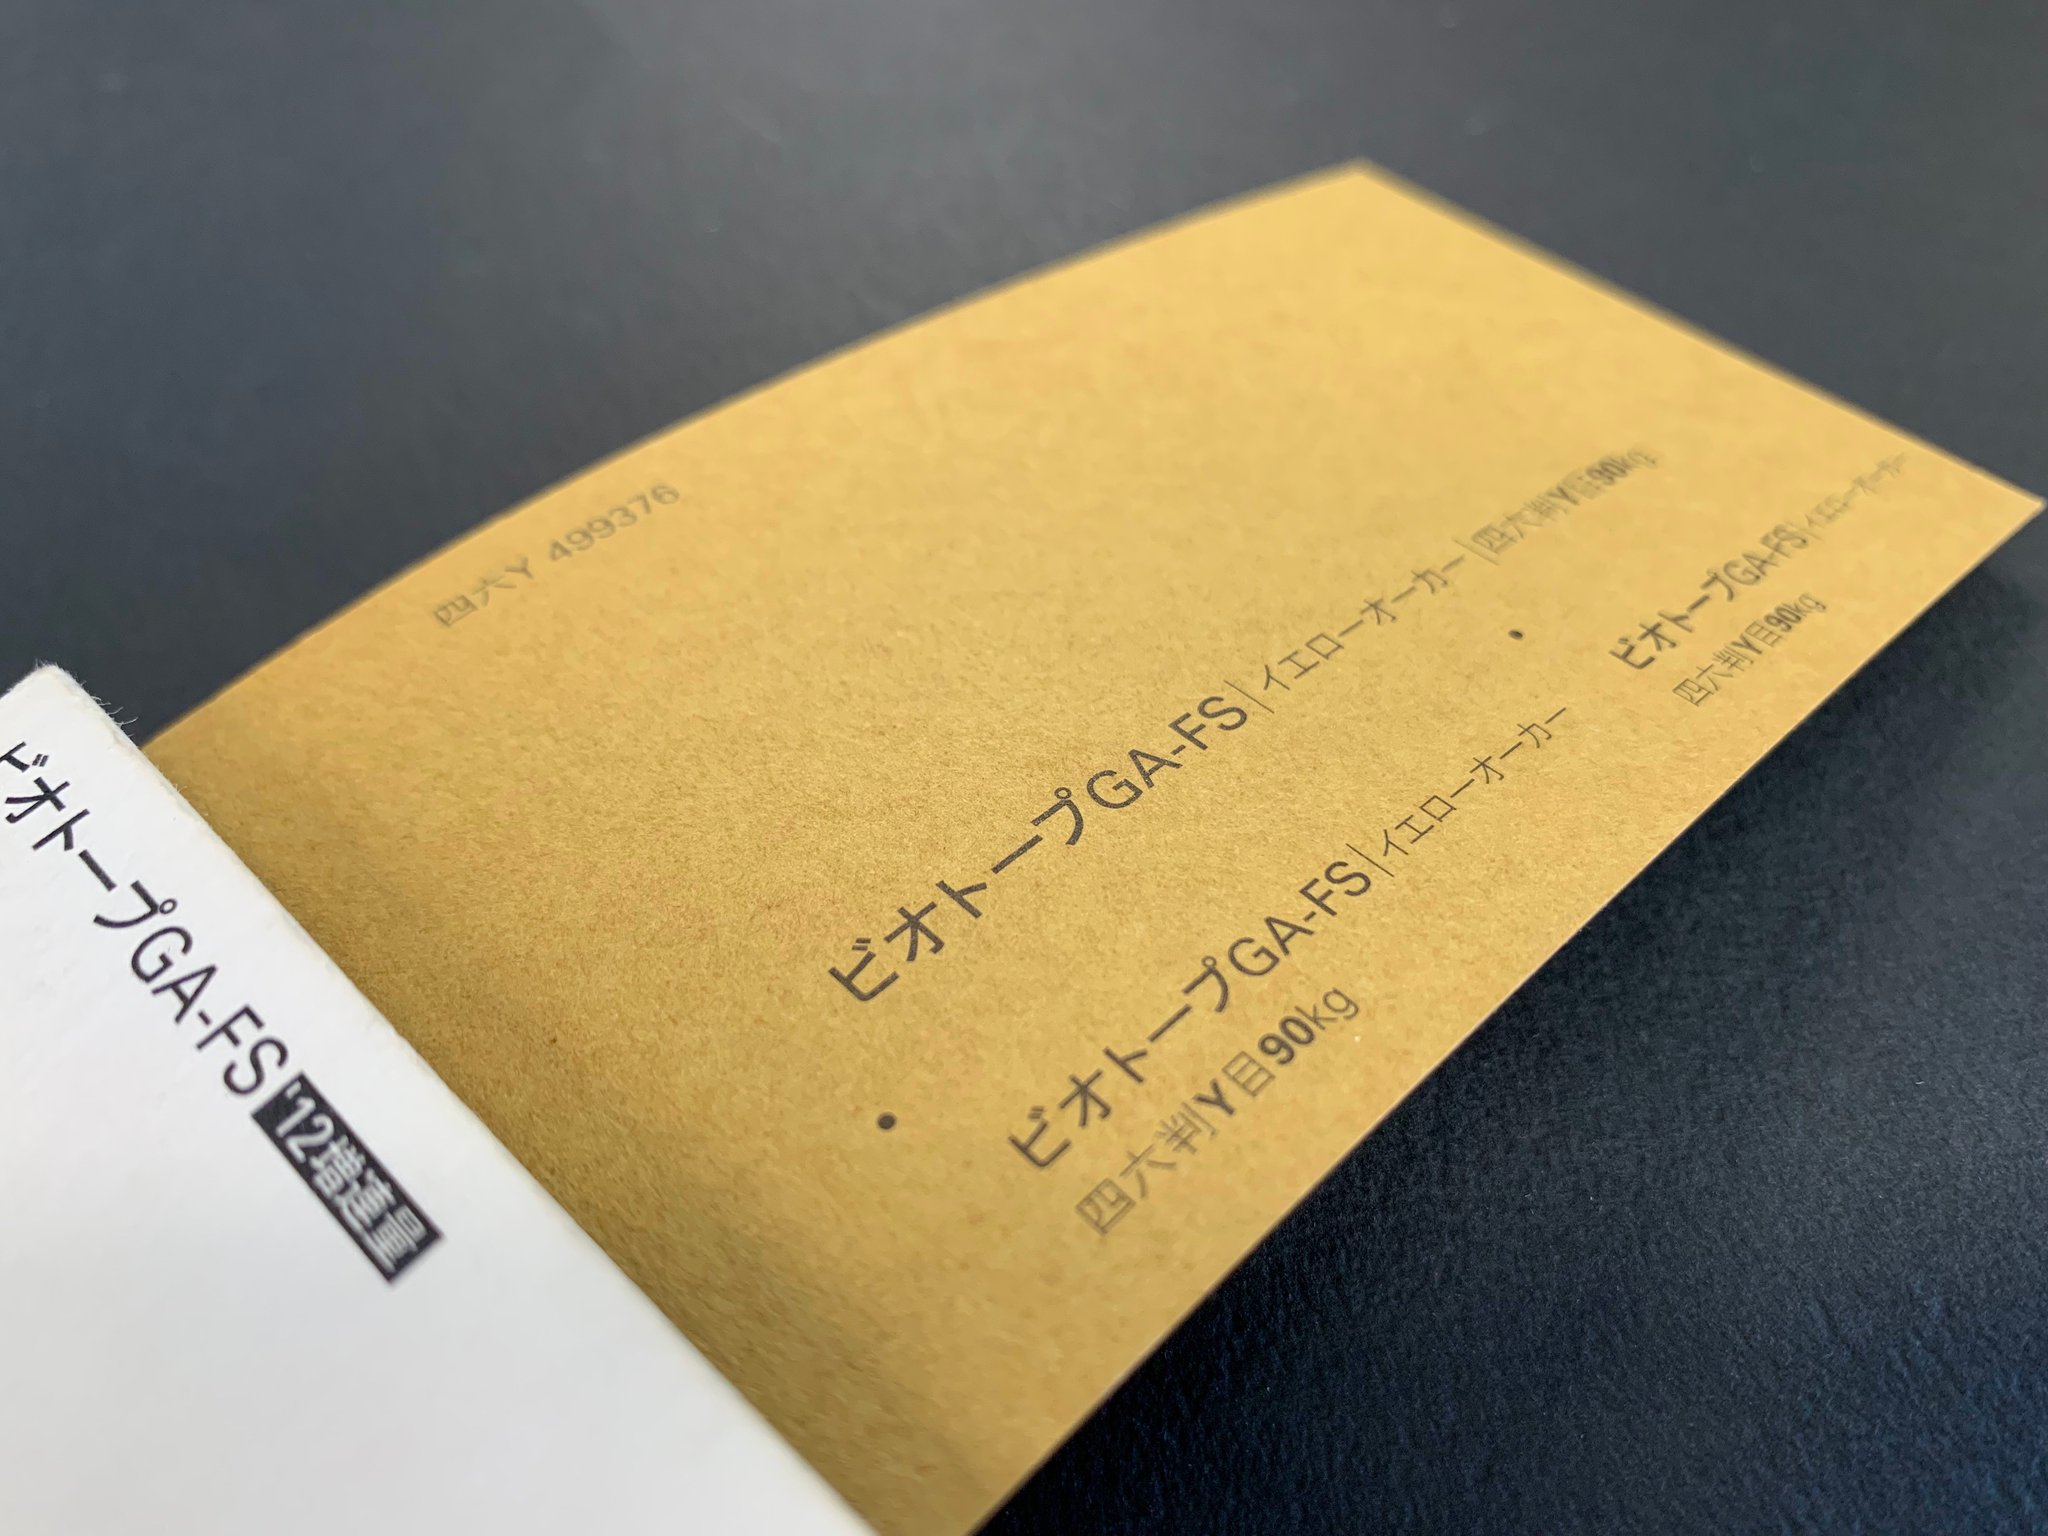 ビオトープGA-FS '12増連量
四六Y 499376
ビオトープGA-FS|イエローオーカー|四六判Y目90kg
ビオトープGA-FS|イエローオーカー
四六判Y目90kg
ビオトープGA-FS|イエローオーカー
四六判Y目90kg